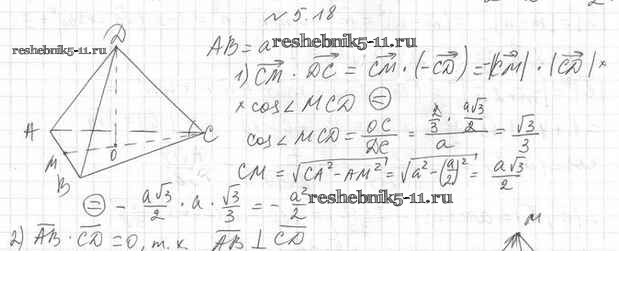 № 5.18
D
www.reshebnik5-11.ru
AB = a reshebnik5-11.ru
1) CM · DC = CM · (-CD) = -|CM| · |CD| ×
× cos∠MCD =
A
cos∠MCD = OC/DC = (2/3 · a√3/2)/a = √3/3
M
O
C
B
CM = √(CA² - AM²) = √(a² - (a/2)²) = a√3/2
= - a√3/2 · a · √3/3 = - a²/2
www.reshebnik5-11.ru
2) AB · CD = 0, т.к. AB ⊥ CD
M